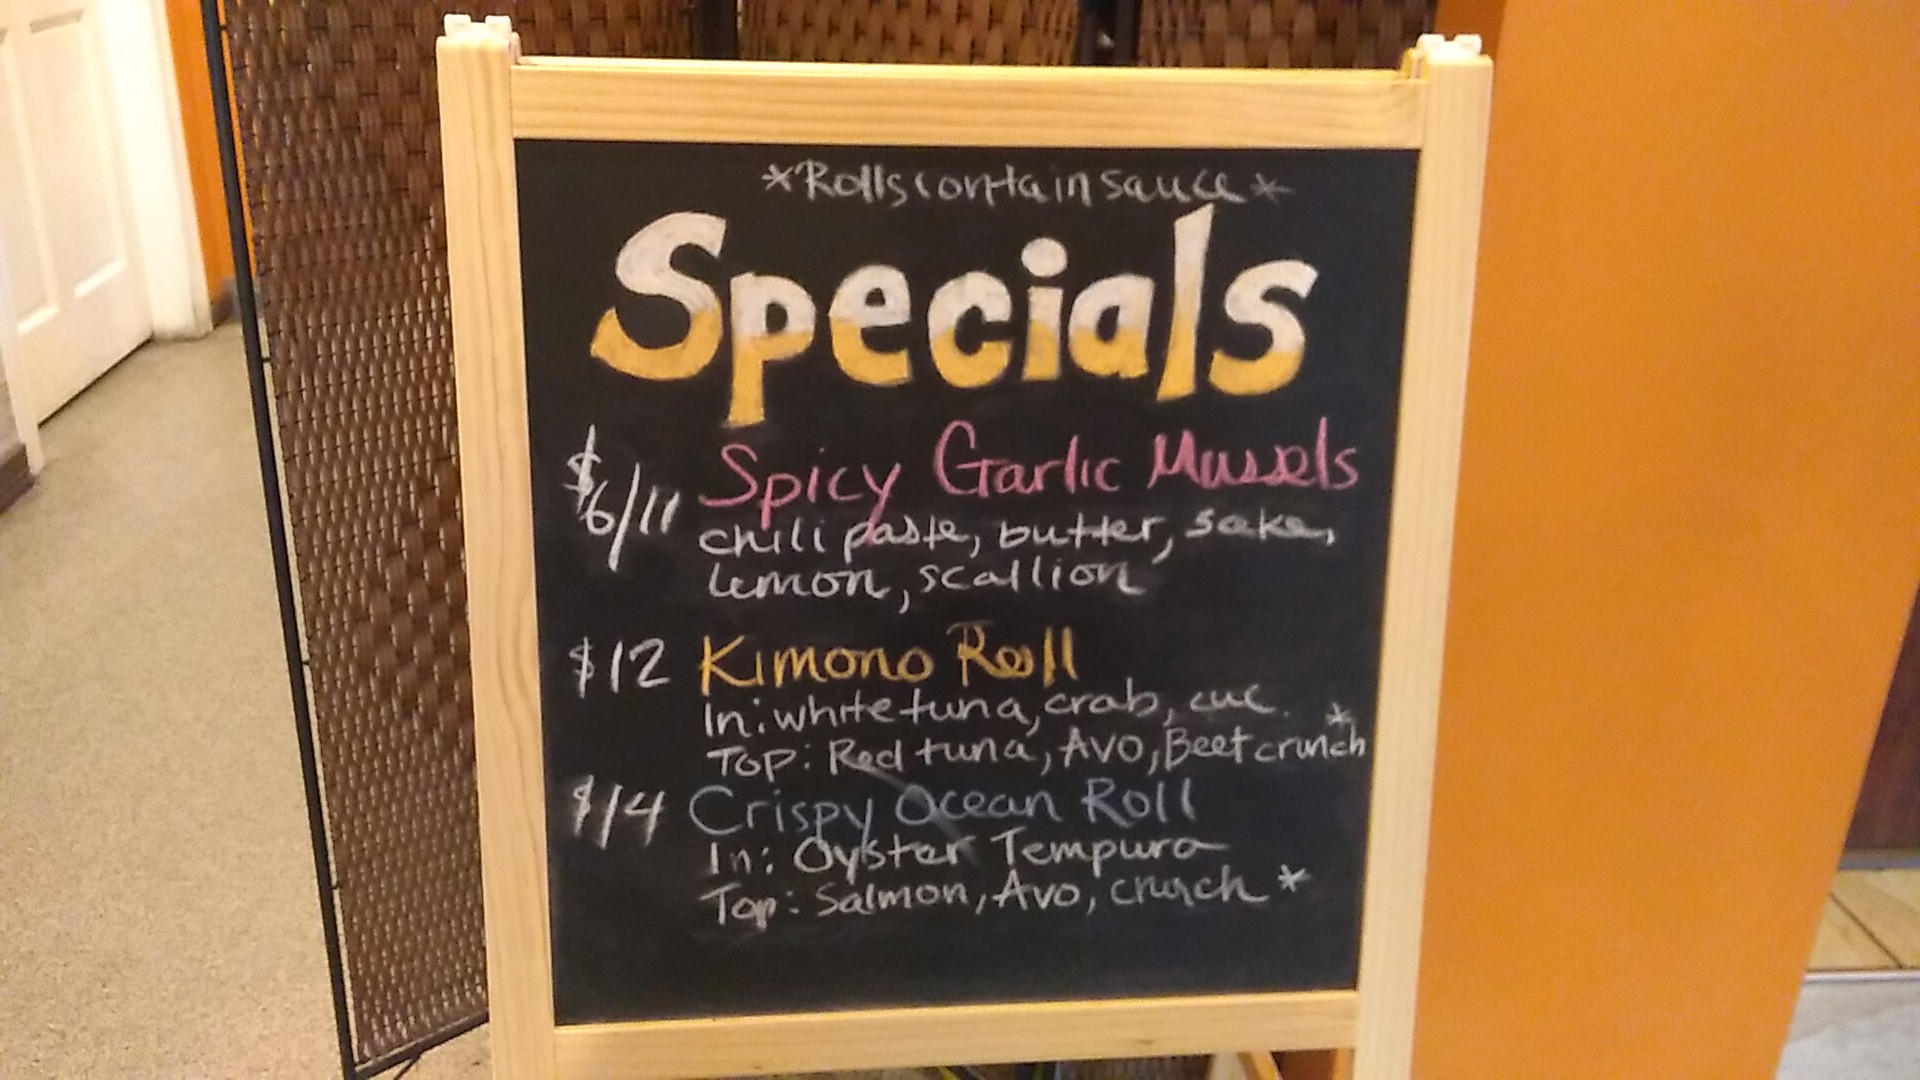 *Rolls contain sauce*
Specials
$6/11 Spicy Garlic Mussels
chili paste, butter, sake,
lemon, scallion
$12 Kimono Roll
In: white tuna, crab, cuc.
Top: Red tuna, Avo, Beet crunch*
$14 Crispy Ocean Roll
In: Oyster Tempura
Top: Salmon, Avo, crunch *